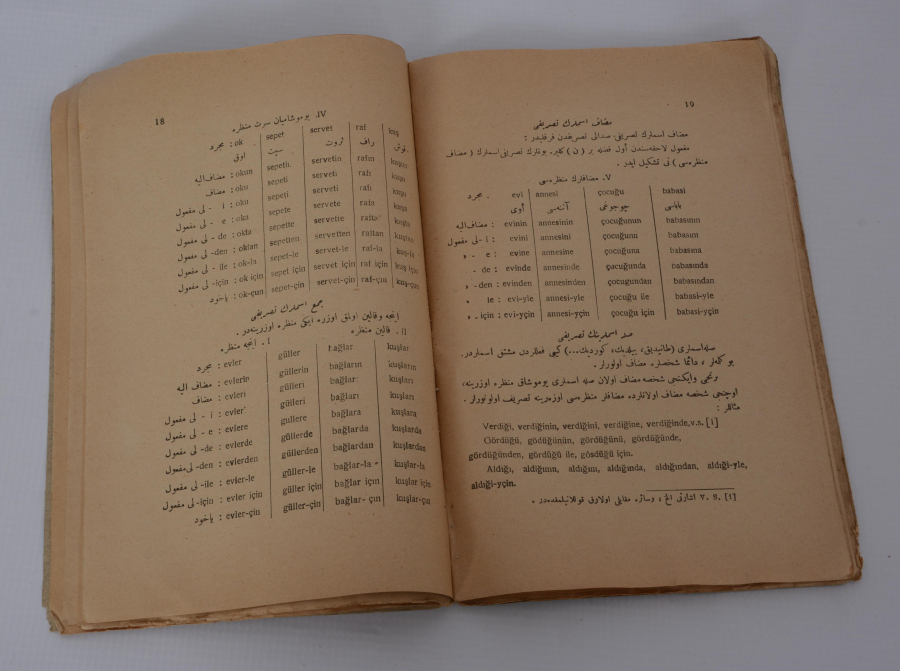 18
IV. يوموشاميان سرت منظره
مجرد : ok sepet servet raf kuş
اوق سپت ثروت راف قوش
مضاف اليه : okun sepetin servetin rafın kuşun
مضاف : oku sepeti serveti rafı kuşu
لى مفعول - i : oku sepeti serveti rafı kuşu
لى مفعول - e : oka sepete servete rafa kuşa
لى مفعول - de : okta sepette servette rafta kuşta
لى مفعول - den : oktan sepetten servetten raftan kuştan
لى مفعول - ile : ok-la sepet-le servet-le raf-la kuş-la
لى مفعول - için : ok-için sepet için servet için raf için kuş için
ياخود : ok-çun sepet-çin servet-çin raf-çın kuş-çun
جمع اسملرك تصريفى
اينجه وقالين اولمق اوزره ايكى منظره اوزرينه‌در .
I. اينجه منظره II. قالين منظره
مجرد : evler güller bağlar kuşlar
مضاف اليه : evlerin güllerin bağların kuşların
مضاف : evleri gülleri bağları kuşları
لى مفعول - i : evleri gülleri bağları kuşları
لى مفعول - e : evlere güllere bağlara kuşlara
لى مفعول - de : evlerde güllerde bağlarda kuşlarda
لى مفعول - den : evlerden güllerden bağlardan kuşlardan
لى مفعول - ile : evler-le güller-le bağlar-la kuşlar-la
لى مفعول - için : evler için güller için bağlar için kuşlar için
ياخود : evler-çin güller-çin bağlar-çın kuşlar-çın
19
مضاف اسملرك تصريفى
مضاف اسملرك تصريفى صدالى تصريفدن فرقليدر :
مفعول لاحقه‌سندن أول فضله بر ( ن ) كلير. بونلرك تصريفى اسملرك ( مضاف
منظره‌سى ) نى تشكيل ايدر .
V. مضافلرك منظره‌سى
مجرد evi annesi çocuğu babasi
أوى آننه‌سى چوجوغى باباسى
مضاف اليه : evinin annesinin çocuğunun babasının
لى مفعول - i : evini annesini çocuğunu babasını
» - e : evine annesine çocuğuna babasına
» - de : evinde annesinde çocuğunda babasında
» - den : evinden annesinden çocugundan babasından
» ile : evi-yle annesi-yle çocuğu ile babasi-yle
» - için : evi-yçin annesi-yçin çocuğu için babasi-yçin
صله اسملرينك تصريفى
صله اسملرى (طانيديق، بيلديك، كورديك...) كبى فعللردن مشتق اسملردر.
بو كلمه‌لر ، دائما شخصلره مضاف اولورلر .
برنجى وايكنجى شخصه مضاف اولان صله اسملرى يوموشاق منظره اوزرينه،
اوچنجى شخصه مضاف اولانلرده مضافلر منظره‌سى اوزمرينه تصريف اولونورلر .
مثاللر :
Verdiği, verdiğinin, verdiğini, verdiğine, verdiğinde,v.s. [1]
Gördüğü, gödüğünün, gördüğünü, gördüğünde,
gördüğünden, gördüğü ile, gösdüğü için.
Aldığı, aldığının, aldığını, aldığında, aldığından, aldıği-yle,
aldıği-yçin.
[1] v. s. اشارتى الخ ، وسائره مقابلى اولارق قوللانيلمقده‌در .